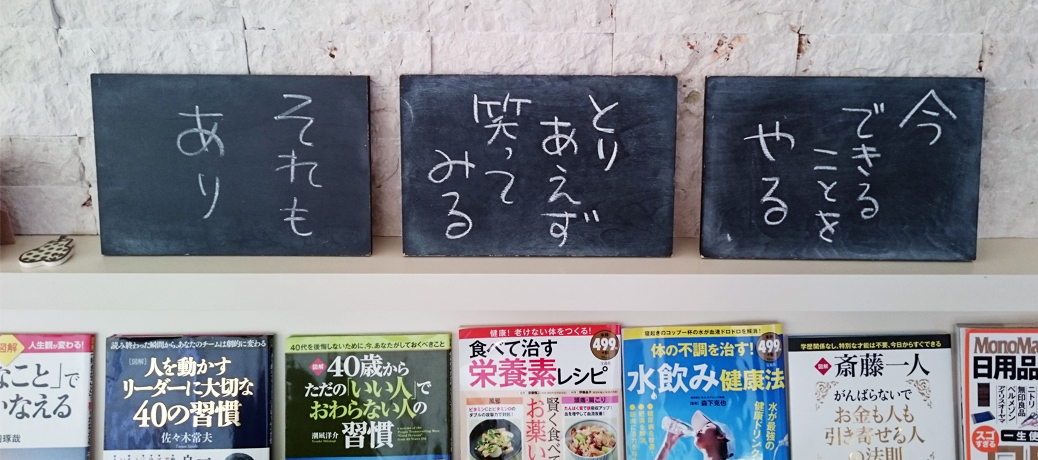 今
できる
ことを
やる
とり
あえず
笑って
みる
それも
あり
図解
人生観が変わる!
なこと」で
なえる
琢哉
読み終わった瞬間から、あなたのチームは劇的に変わる
[図解]
人を動かす
リーダーに大切な
40の習慣
佐々木常夫
40代を後悔しないために、今、あなたがしておくべきこと
図解
40歳から
ただの「いい人」で
おわらない人の
習慣
潮凪洋介
健康!老けない体をつくる!
499
食べて治す
栄養素レシピ
風邪
ビタミンCとビタミンの
ダブルの底力で対抗!
賢く食べて
お薬い
頭痛・肩こり
寝起きのコップ一杯の水が血液ドロドロを解消!
499
体の不調を治す!
水飲み健康法
森下克也
水が最強の
健康ドリンク
学歴関係なし、特別な才能は不要、今日からすぐできる
図解
斎藤一人
がんばらないで
お金も人も
引き寄せる人
の法則
MonoMa
日用品
ニトリ
無印良品
ベルメゾン
アイリスオーヤマ
スゴ
すぎる
一生使